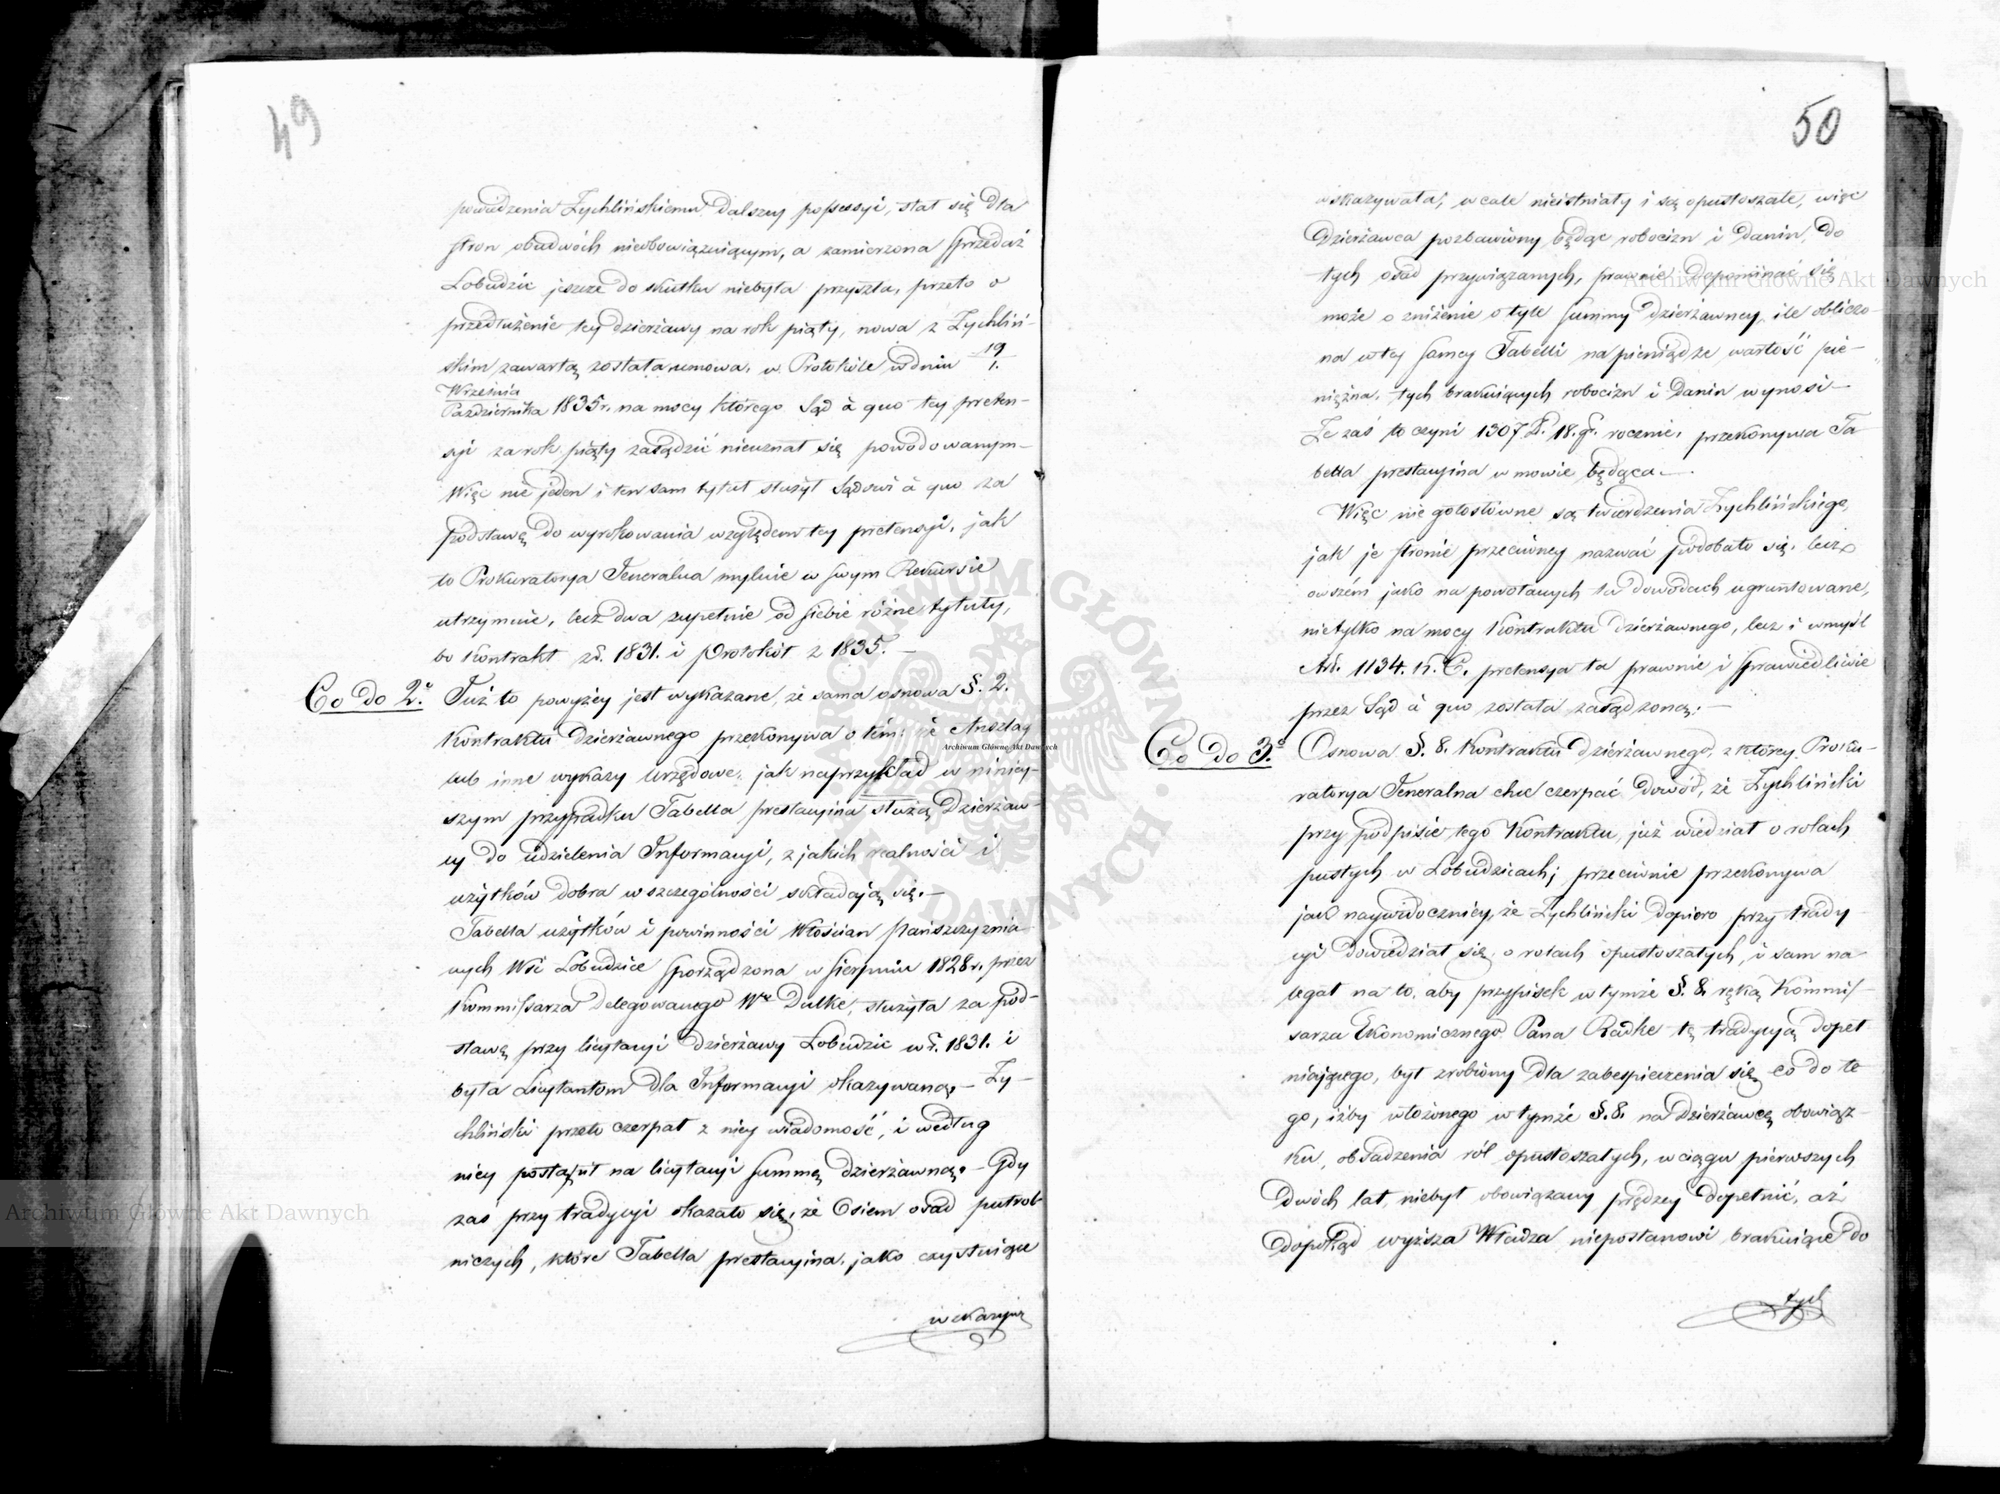 49
powodzenia Zychlińskiemu dalszey possessyi, stał się dla
stron obudwóch nieobowiązuiącym, a zamierzona sprzedaż
Łobudzic jeszcze do skutku niebyła przyszła, przeto o
przedłużenie tey dzierżawy na rok piąty, nowa z Zychliń-
skim zawartą została umowa, w Protokóle w dniu 19/1.
Września
Października 1835 r. na mocy którego Sąd à quo tey preten-
syi za rok piąty zasądzić nieuznał się powodowanym—
Więc nie jeden i ten sam tytuł służył Sądowi à quo za
podstawę do wyrokowania względem tey pretensyi, jak
to Prokuratorya Generalna mylnie w swym Rekursie
utrzymuie, lecz dwa zupełnie od siebie różne tytuły,
bo Kontrakt z r. 1831. i Protokół z 1835. —
Co do 2º. Już to powyżey jest wykazane, że sama osnowa §. 2.
Kontraktu dzierżawnego przekonywa o tém: że Anszlag
lub inne wykazy urzędowe, jak naprzykład w niniey-
szym przypadku Tabella prestacyina służą Dzierżaw-
cy do udzielenia Informacyi, z jakich realności i
użytków dobra w szczególności składają się. —
Tabella użytków i powinności Włościan pańszczyznia-
nych Wsi Łobudzice sporządzona w sierpniu 1828 r. przez
Kommissarza Delegowanego Wº Dulke, służyła za pod-
stawę przy licytacyi dzierżawy Łobudzic w r. 1831. i
była Licytantom dla Informacyi okazywaną. — Zy-
chliński przeto czerpał z niey wiadomość, i według
niey postąpił na licytacyi summę dzierżawną. — Gdy
zaś przy tradycyi okazało się, że Osiem osad putrob-
niczych, które Tabella prestacyina, jako czystuiące
wskazywała,
50
wskazywała, wcale nieistniały i są opustoszałe, więc
Dzierżawca pozbawiony będąc robocizn i Danin, do
tych osad przywiązanych, prawnie dopominać się
może o zniżenie o tyle summy dzierżawney, ile obliczo-
na w tey samey Tabelli na pieniądze wartość pie-
niężna, tych brakuiących robocizn i Danin wynosi—
Że zaś to czyni 1307 Zł. 18. g. rocznie, przekonywa Ta
bella prestacyina w mowie będąca. —
Więc nie gołosłowne są twierdzenia Zychlińskiego,
jak je stronie przeciwney nazwać podobało się, lecz
owszém jako na powołanych tu dowodach ugruntowane,
nietylko na mocy Kontraktu dzierżawnego, lecz i w myśl
Art. 1134. K. C. pretensya ta prawnie i sprawiedliwie
przez Sąd à quo została zasądzoną. —
Co do 3º. Osnowa §. 8. Kontraktu dzierżawnego, z którey Proku-
ratorya Generalna chce czerpać dowód, że Zychliński
przy podpisie tego Kontraktu, już wiedział o rolach
pustych w Łobudzicach; przeciwnie przekonywa
jak naywidoczniey, że Zychliński dopiero przy trady-
cyi dowiedział się o rolach opustoszałych, i sam na
legał na to, aby przypisek w tymże §. 8. ręką Kommis-
sarza Ekonomicznego Pana Radke tę tradycyą dopeł
niaiącego, był zrobiony dla zabespieczenia się co do te
go, iżby włożonego w tymże §. 8. na Dzierżawcę obowiąz-
ku, obsadzenia ról opustoszałych, w ciągu pierwszych
dwóch lat, niebył obowiązany prędzey dopełnić, aż
dopokąd wyższa Władza niepostanowi brakuiące do
tych
Archiwum Główne Akt Dawnych
Archiwum Główne Akt Dawnych
Archiwum Główne Akt Dawnych
ARCHIWUM GŁÓWNE AKT DAWNYCH